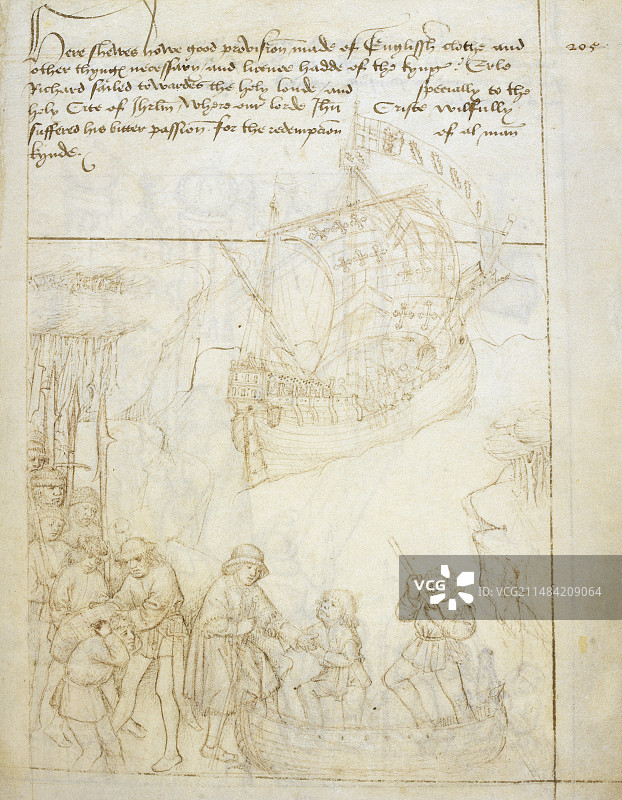 Here shewes howe good provision made of Englissh clothe and
other thyngs necessary and licence hadde of the kynge Erle
Richard sailed towardes the holy londe and specially to the
holy Cite of Jhrlm Where our lorde Jhu Criste wilfully
suffered his bitter passion for the redempcion of al man
kynde.
205
VCG
VCG ID:VCG211484209064